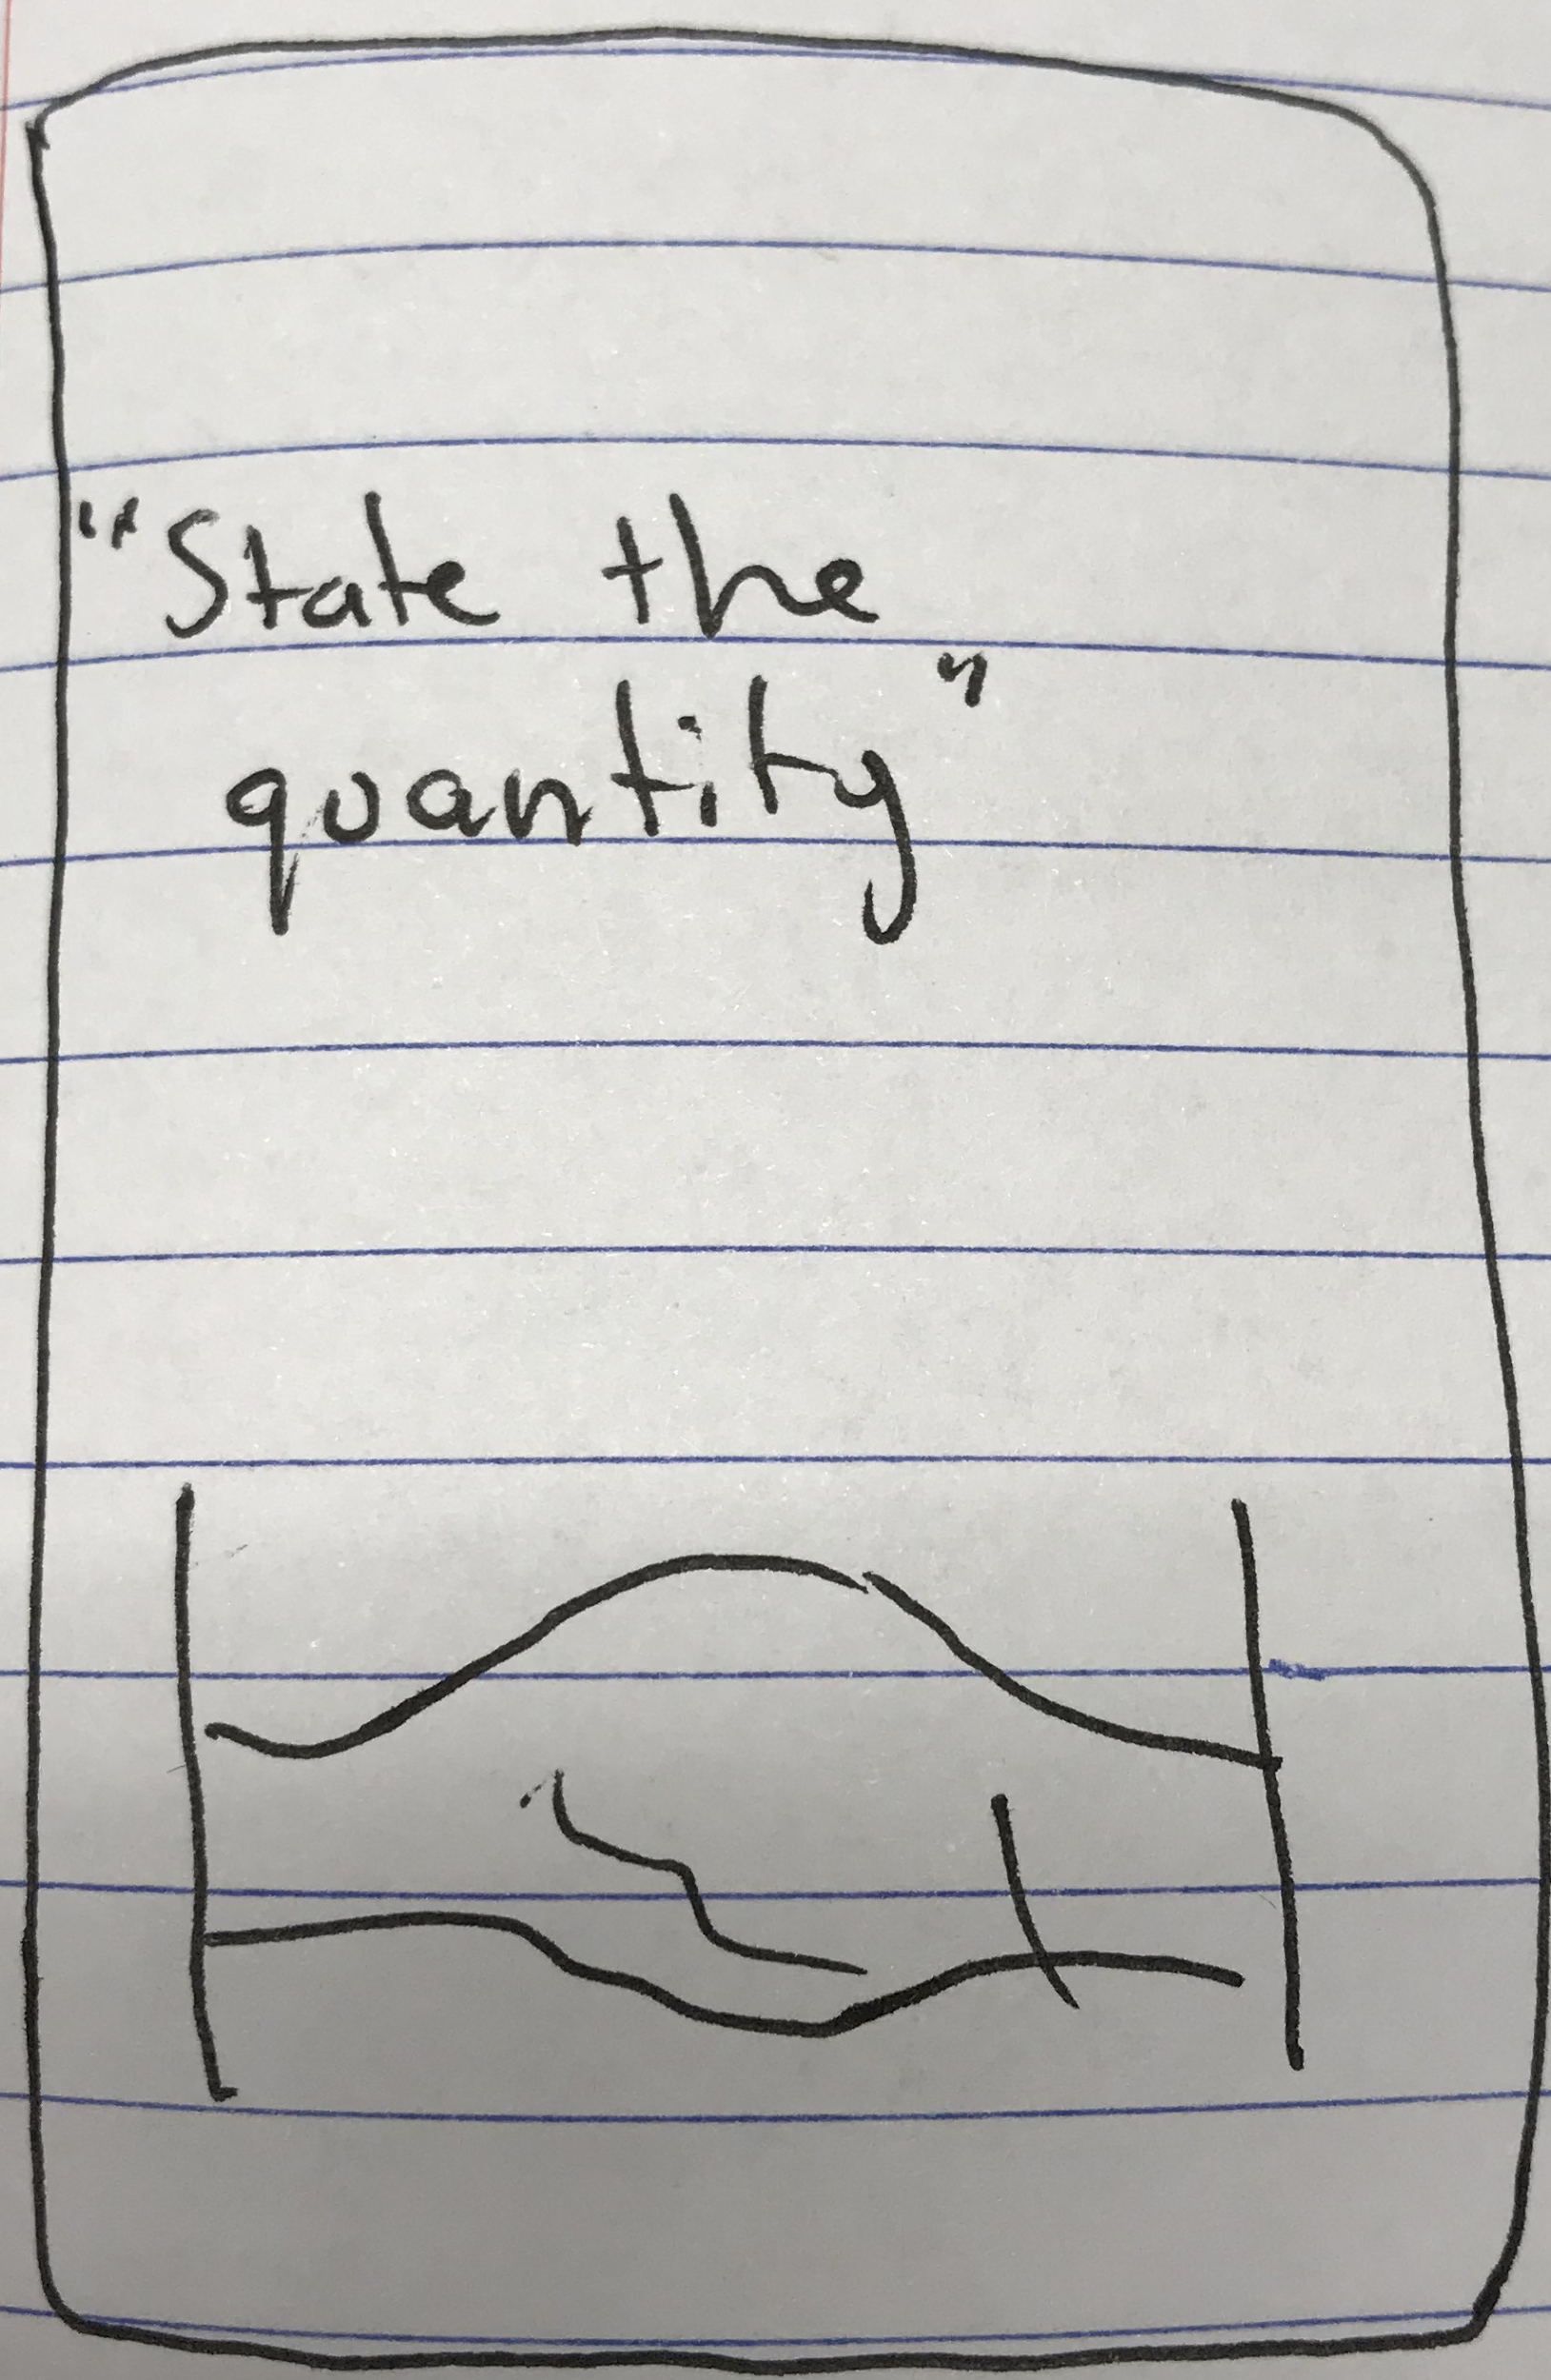 "State the
quantity"